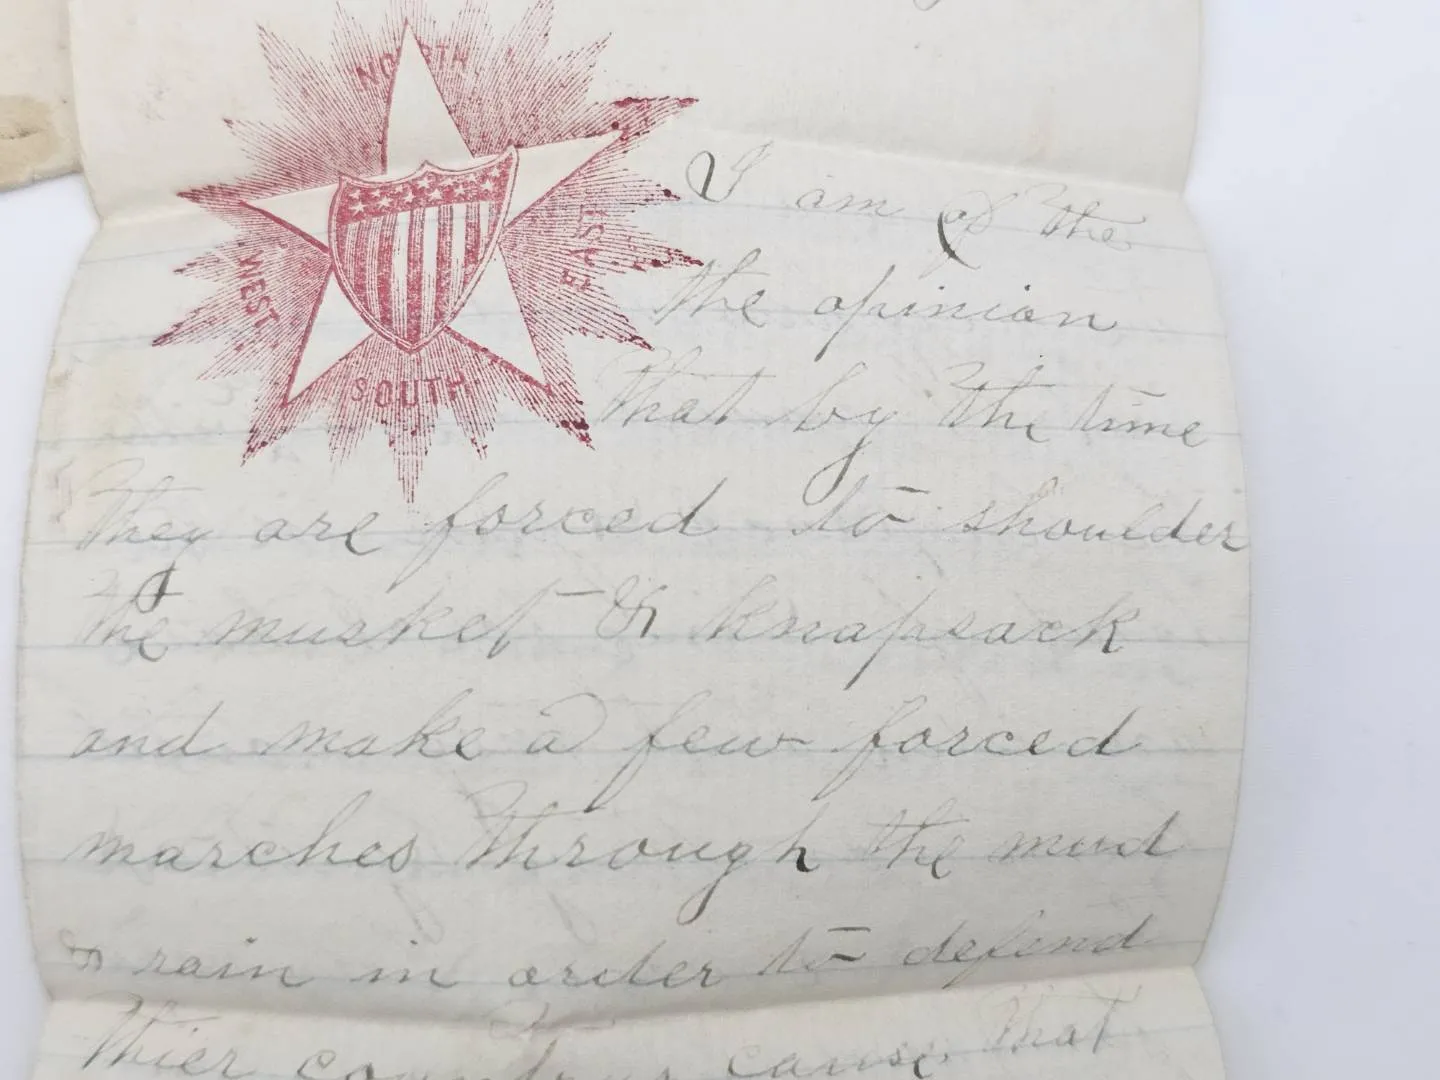 NORTH
WEST
EAST
SOUTH
I am of the
the opinion
that by the time
they are forced to shoulder
the musket & knapsack
and make a few forced
marches through the mud
& rain in order to defend
thier countrys cause that